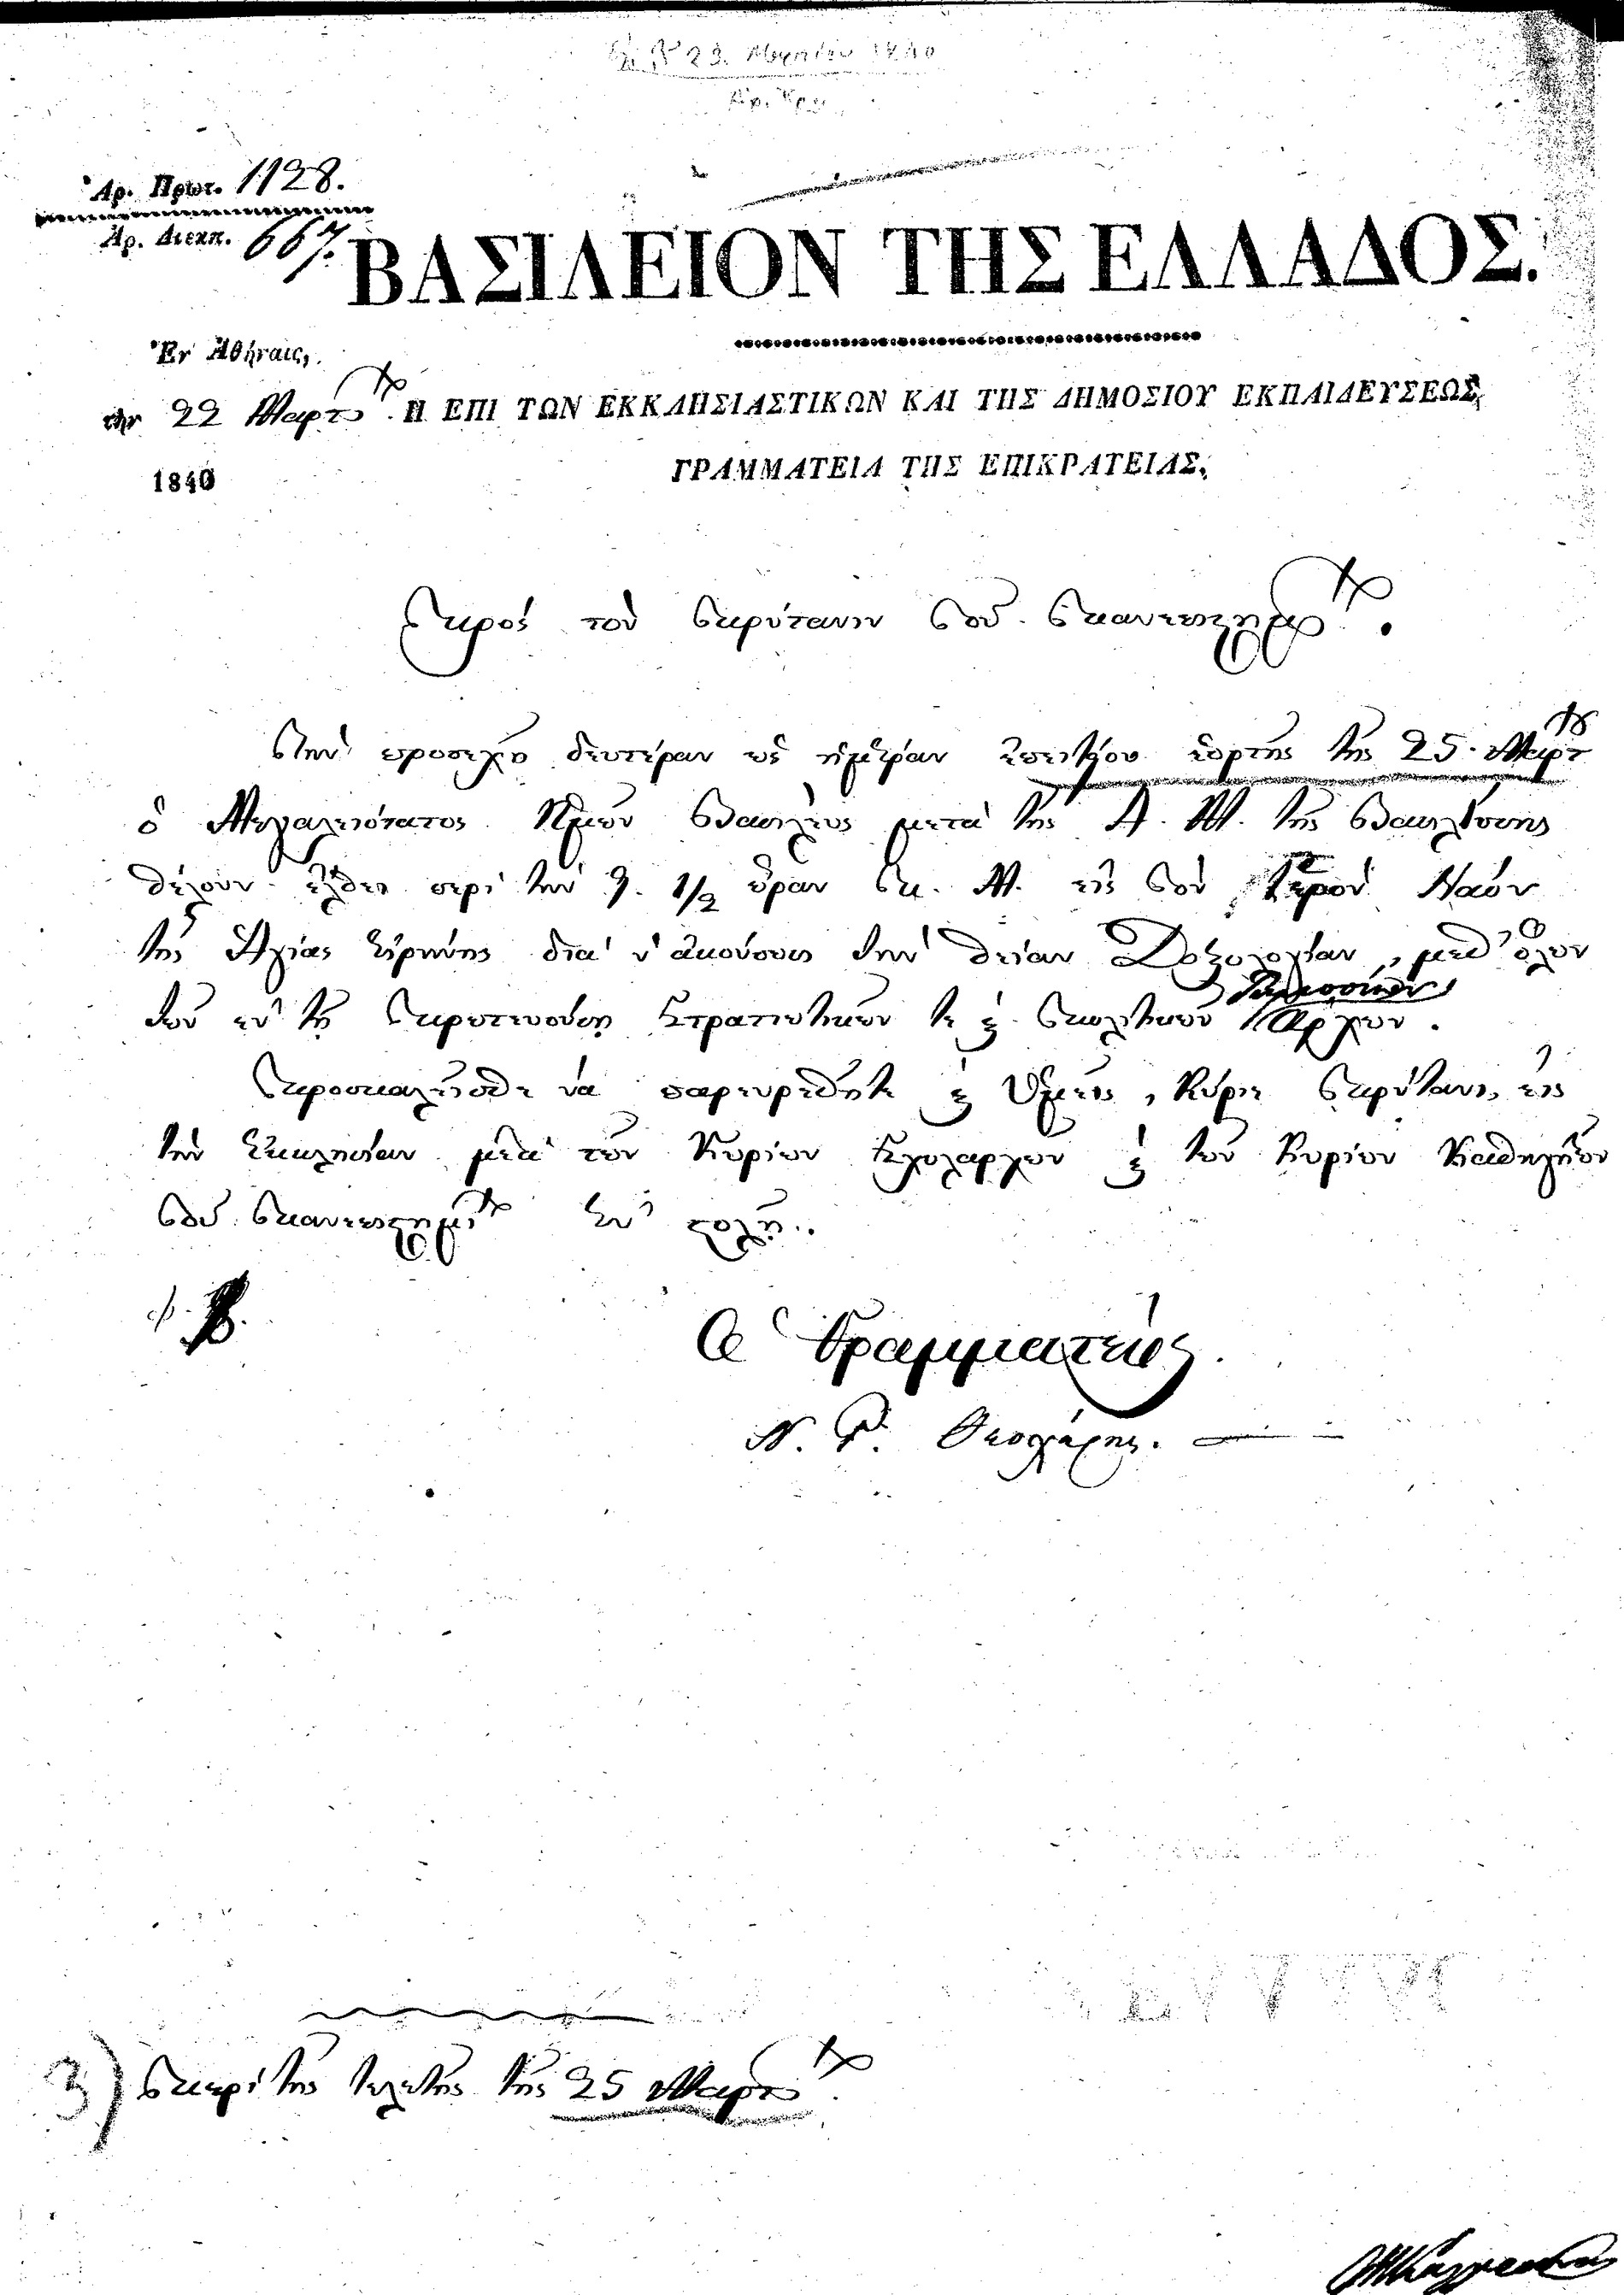 23. Μαρτίου 1840
Ἀρ. Πρωτ. 1128.
Ἀρ. Διεκπ. 667.
ΒΑΣΙΛΕΙΟΝ ΤΗΣ ΕΛΛΑΔΟΣ.
Ἐν Ἀθήναις,
τὴν 22 Μαρτίου
Η ΕΠΙ ΤΩΝ ΕΚΚΛΗΣΙΑΣΤΙΚΩΝ ΚΑΙ ΤΗΣ ΔΗΜΟΣΙΟΥ ΕΚΠΑΙΔΕΥΣΕΩΣ
1840
ΓΡΑΜΜΑΤΕΙΑ ΤΗΣ ΕΠΙΚΡΑΤΕΙΑΣ.
Πρὸς τὸν Πρύτανιν τοῦ Πανεπιστημίου.
Τὴν προσεχῆ δευτέραν ὡς ἡμέραν ἐπετείου ἑορτῆς τῆς 25 Μαρτίου
ὁ Μεγαλειότατος Ἡμῶν Βασιλεὺς μετὰ τῆς Α. Μ. τῆς Βασιλίσσης
θέλουν ἐλθεῖ περὶ τὴν 9. 1/2 ὥραν π. Μ. εἰς τὸν Ἱερὸν Ναὸν
τῆς Ἁγίας Εἰρήνης διὰ ν' ἀκούσουν τὴν θείαν Δοξολογίαν, μεθ' ὅλων
τῶν ἐν τῇ Πρωτευούσῃ Στρατιωτικῶν τε καὶ Πολιτικῶν Ἀρχῶν.
Προσκαλεῖσθε νὰ παρευρεθῆτε καὶ Ὑμεῖς, Κύριε Πρύτανι, εἰς
τὴν Ἐκκλησίαν μετὰ τῶν Κυρίων Σχολαρχῶν καὶ τῶν Κυρίων Καθηγητῶν
τοῦ Πανεπιστημίου ἐν στολῇ.
Ὁ Γραμματεύς.
Ν. Γ. Θεοχάρης.
3) Περὶ τῆς τελετῆς τῆς 25 Μαρτίου